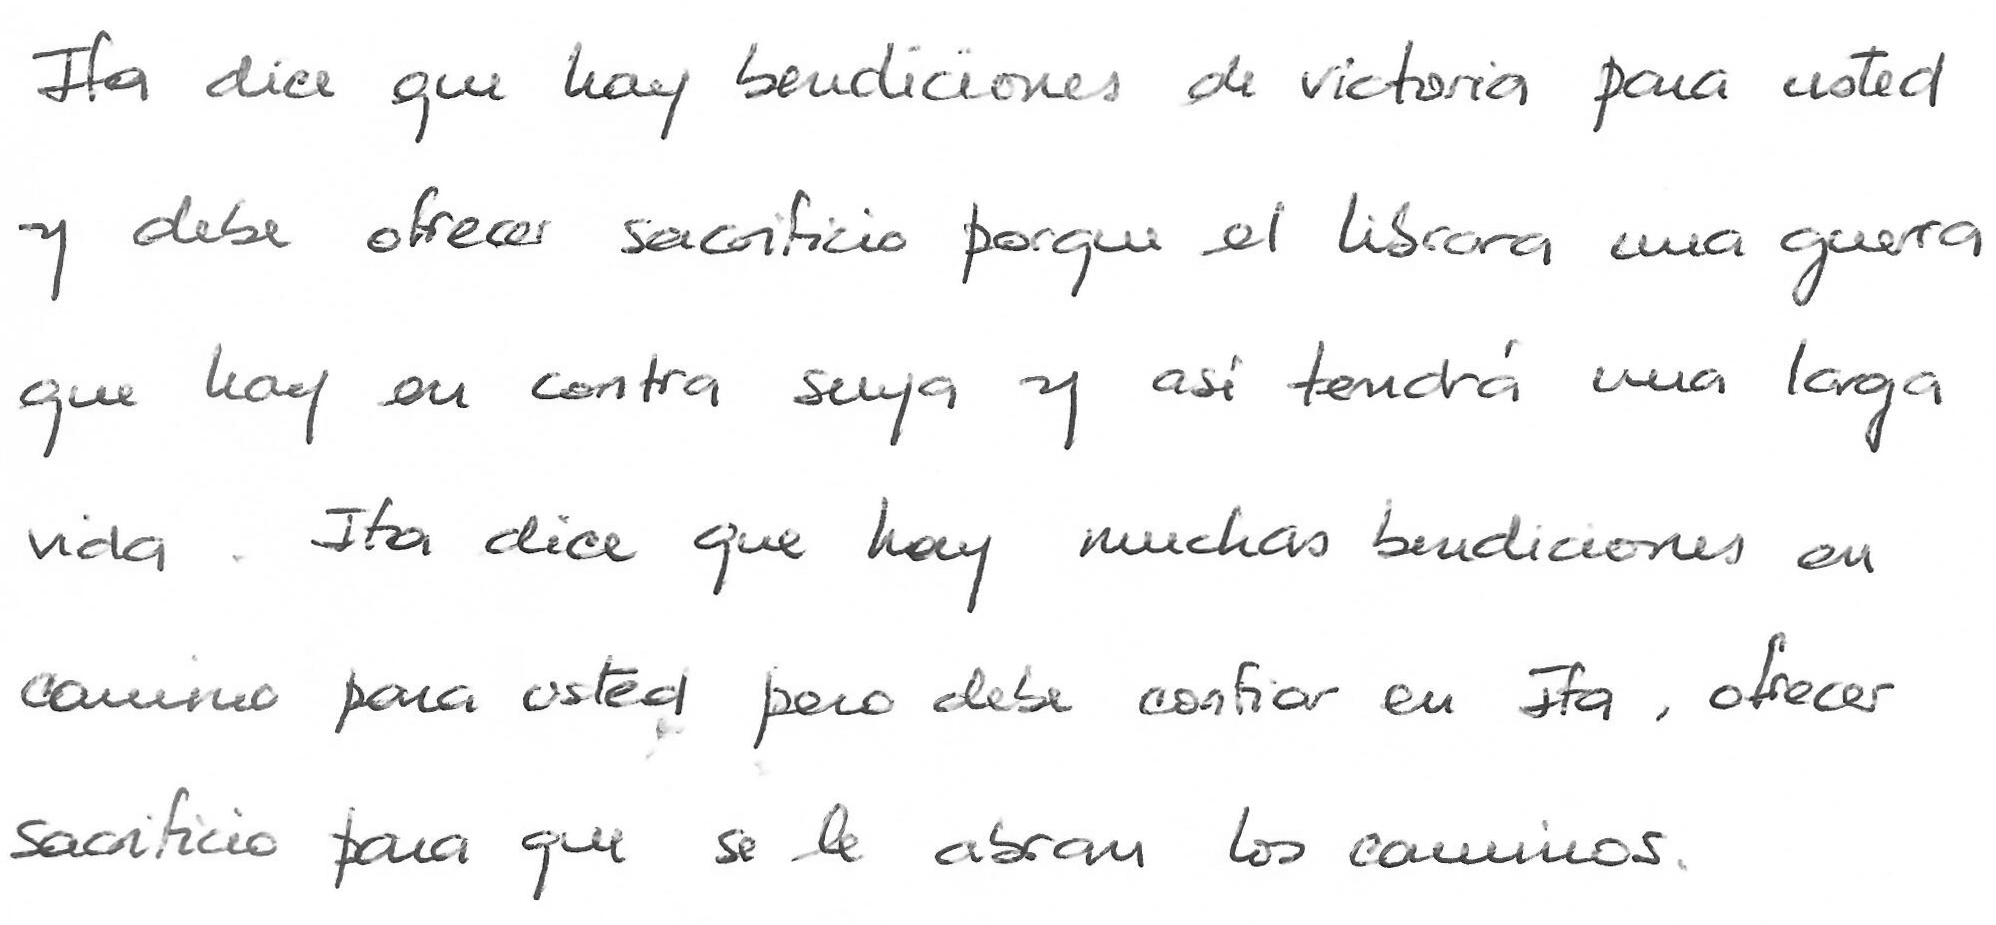 Ifa dice que hay bendiciones de victoria para usted
y debe ofrecer sacrificio porque el librara una guerra
que hay en contra suya y así tendrá una larga
vida. Ifa dice que hay muchas bendiciones en
camino para usted pero debe confiar en Ifa, ofrecer
sacrificio para que se le abran los caminos.